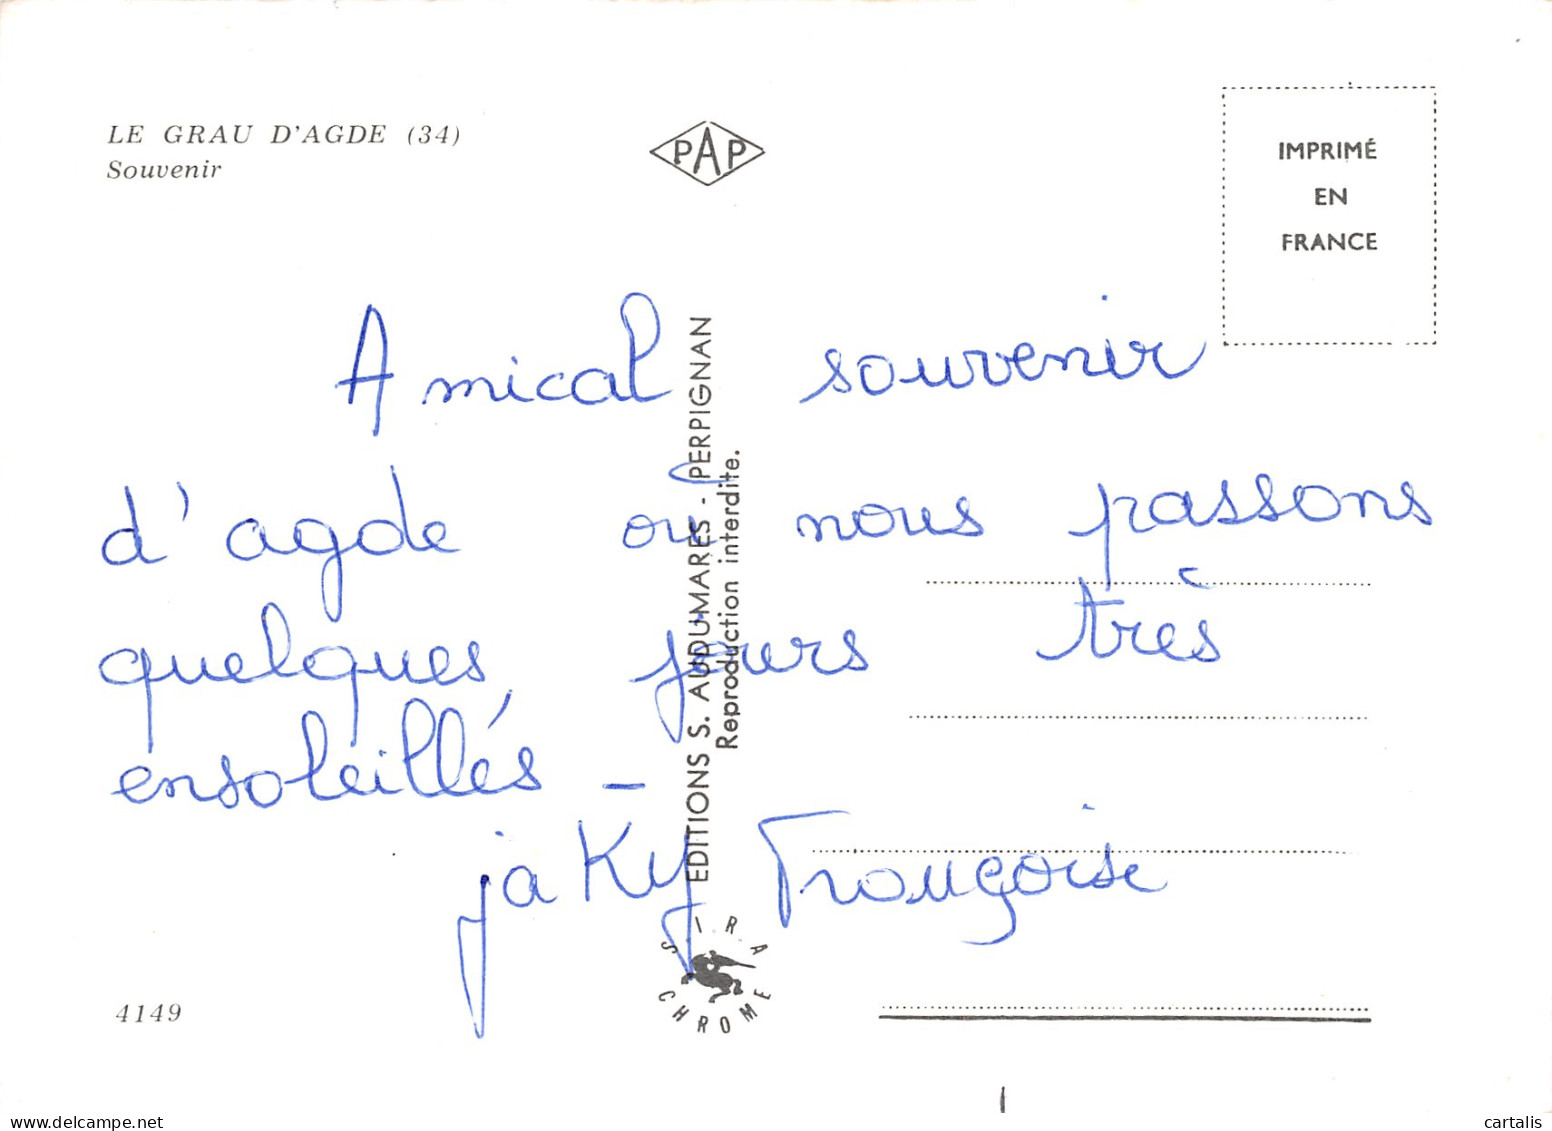 LE GRAU D'AGDE (34)
Souvenir
PAP
IMPRIMÉ
EN
FRANCE
Amical souvenir
d'agde où nous passons
quelques jours très
ensoleillés –
jaky Françoise
EDITIONS S. AUDUMARES - PERPIGNAN
Reproduction interdite.
SIRA
CHROME
4149
www.delcampe.net
cartalis